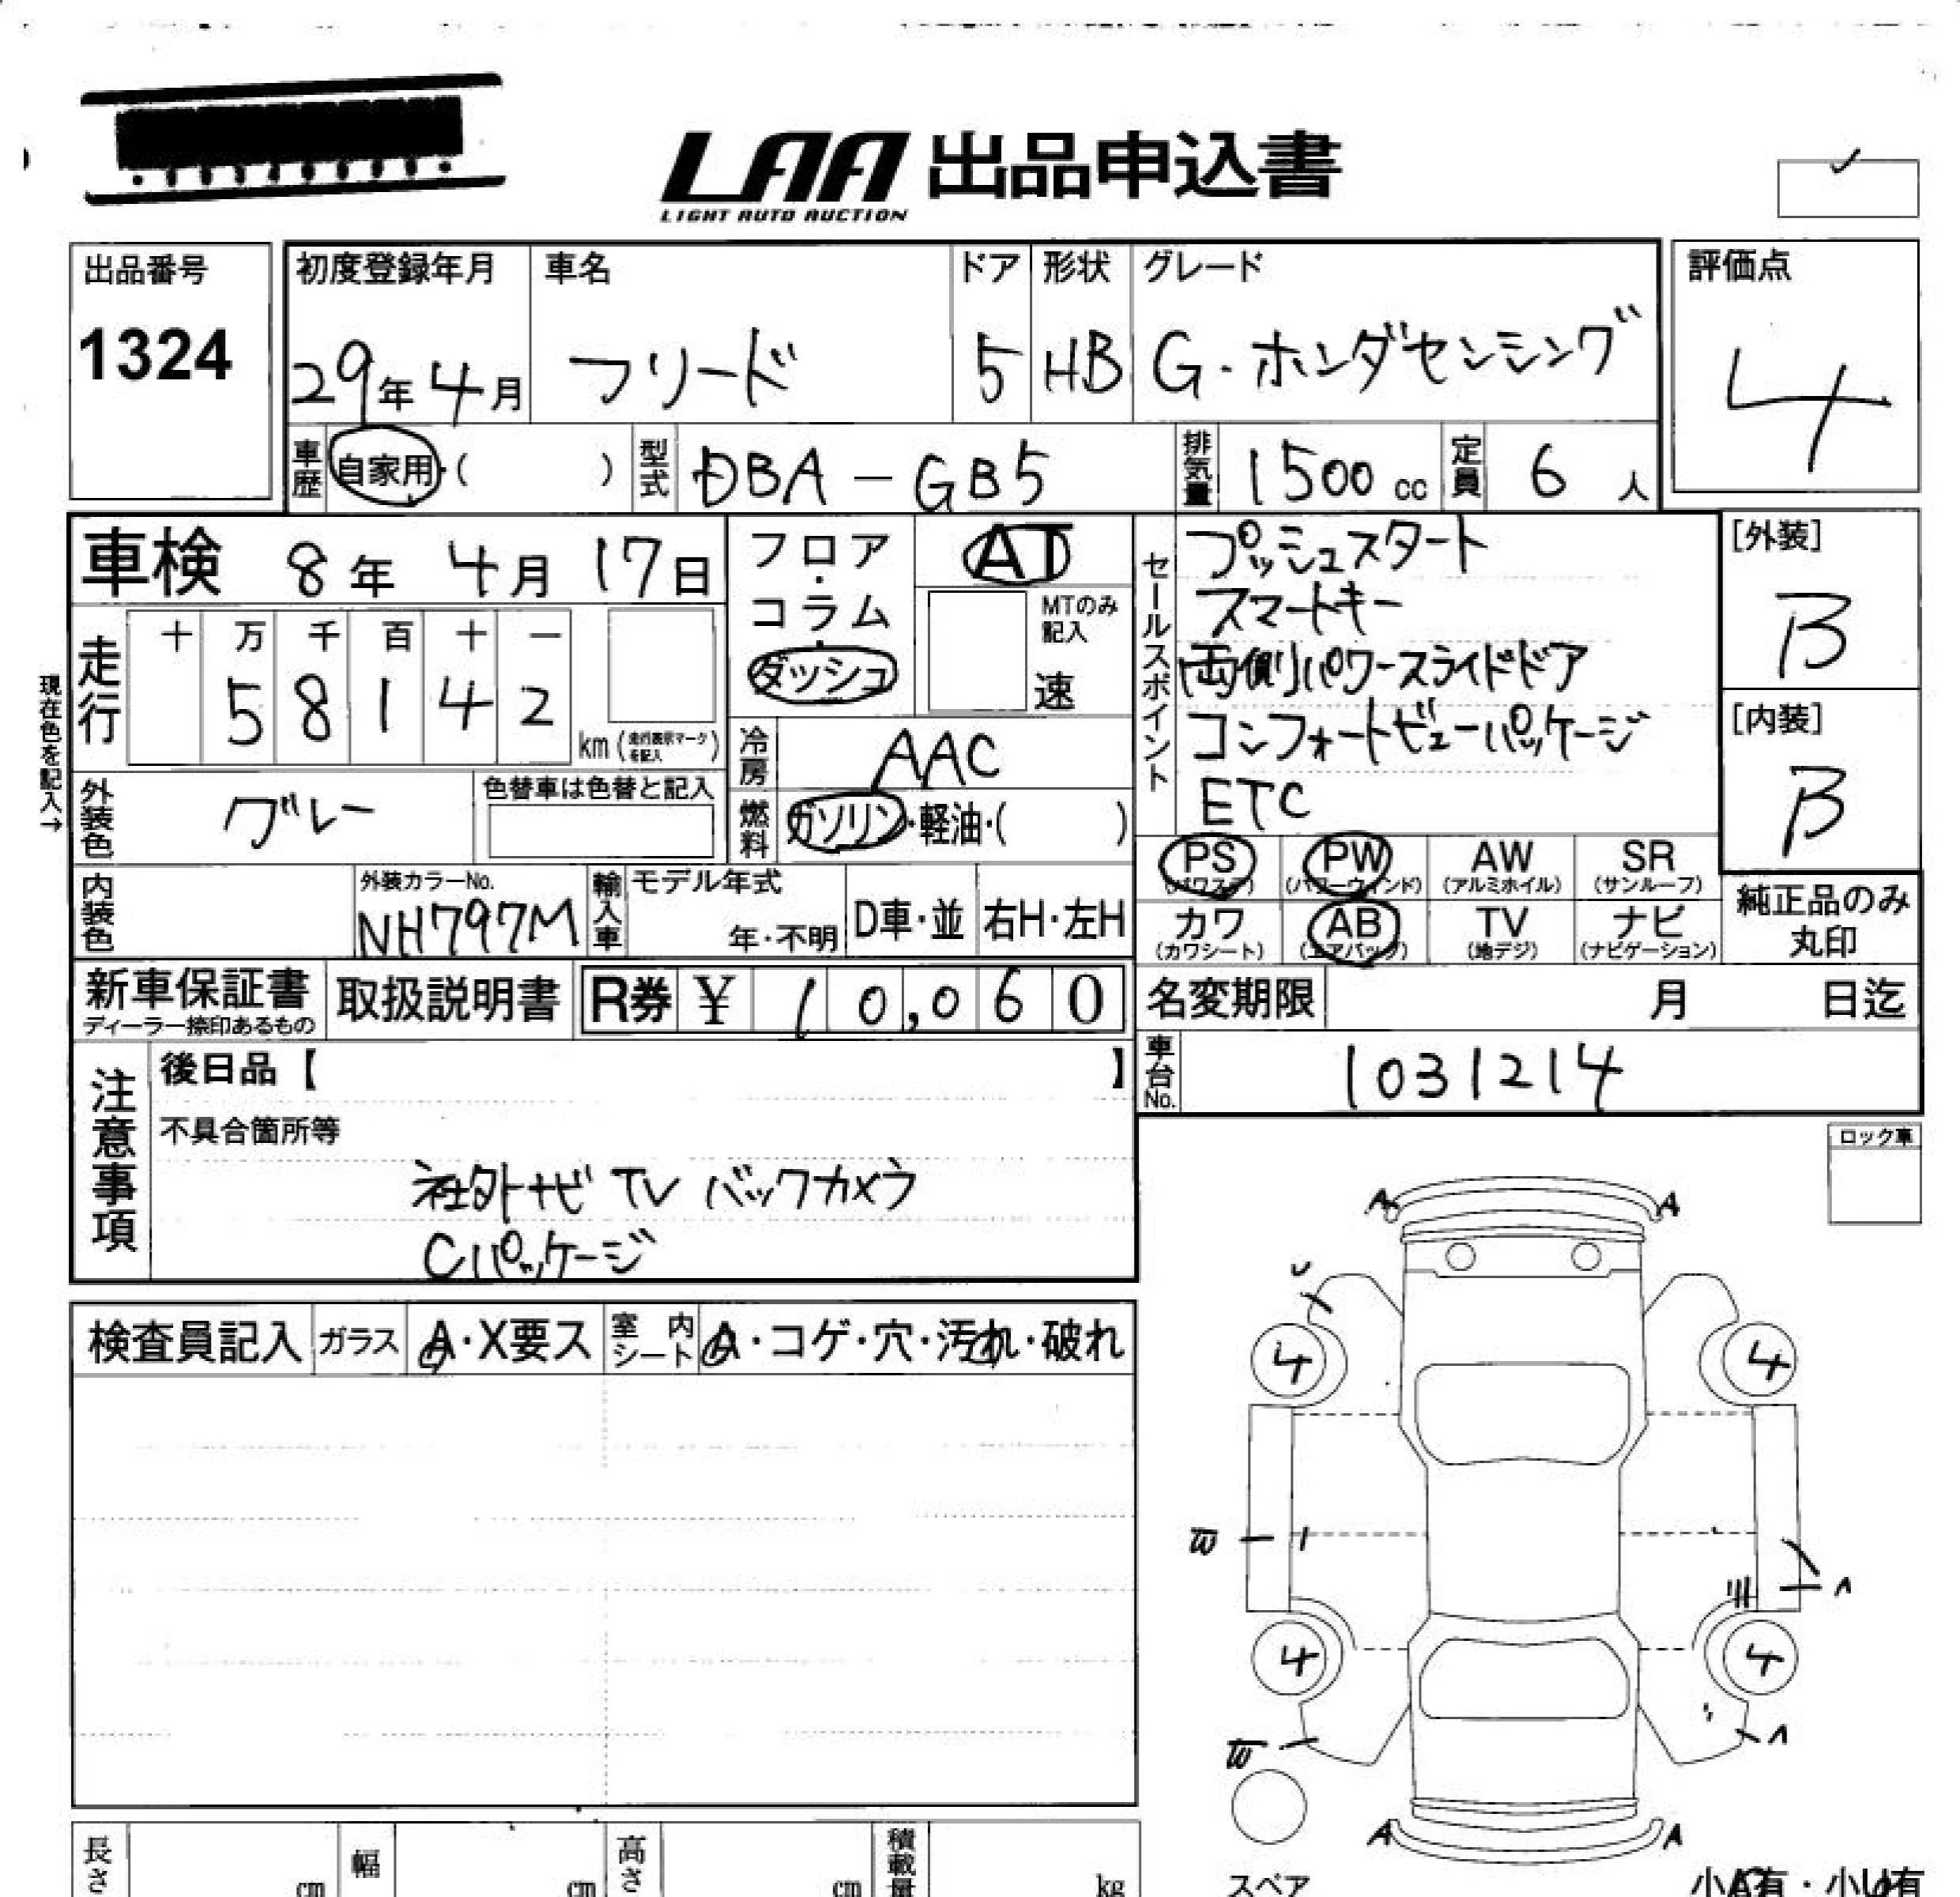 LAA 出品申込書
LIGHT AUTO AUCTION
出品番号
1324
初度登録年月
29年 4月
車名
フリード
ドア
5
形状
HB
グレード
G・ホンダセンシング
評価点
4
車歴
自家用・( )
型式
DBA-GB5
排気量
1500 cc
定員
6 人
車検 8年 4月 17日
走行
十 万 千 百 十 一
5 8 1 4 2
km (走行表示マークを記入)
現在色を記入→
フロア・コラム・ダッシュ
AT
MTのみ記入
速
冷房
AAC
燃料
ガソリン・軽油・( )
セールスポイント
プッシュスタート
スマートキー
両側パワースライドドア
コンフォートビューパッケージ
ETC
[外装]
B
[内装]
B
外装色
グレー
色替車は色替と記入
内装色
外装カラーNo.
NH797M
輸入車
モデル年式
年・不明
D車・並
右H・左H
PS (パワステ)
PW (パワーウィンド)
AW (アルミホイル)
SR (サンルーフ)
カワ (カワシート)
AB (エアバッグ)
TV (地デジ)
ナビ (ナビゲーション)
純正品のみ丸印
新車保証書
ディーラー捺印あるもの
取扱説明書
R券 ¥ 10,060
名変期限 月 日迄
車台No.
1031214
注意事項
後日品【 】
不具合箇所等
社外ナビ TV バックカメラ
Cパッケージ
ロック車
検査員記入
ガラス
A・X要ス
室内シート
A・コゲ・穴・汚れ・破れ
A A
4 4
W
4 4
W
A A
スペア
長さ cm
幅 cm
高さ cm
積載量 kg
小A有・小U有